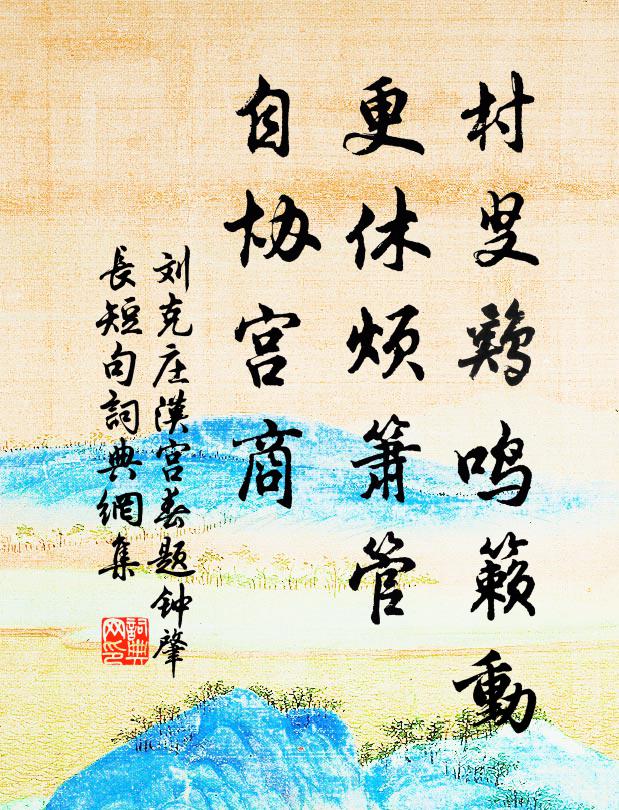 村叟鶏鸣籁動
更休烦箫管
自协宫商
刘克庄漢宫春题钟肇
長短句詞典網集
詞典网印